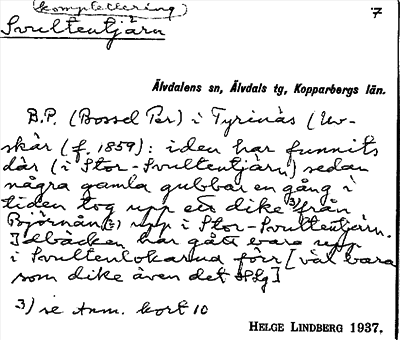 (komplettering) 7
Svultentjärn
Älvdalens sn, Älvdals tg, Kopparbergs län.
B.P. (Bossel Per) i Tyrinäs (Ur-
skår (f. 1859): iden har funnits
där (i Stor-Svultentjärn) sedan
några gamla gubbar en gång i
tiden tog upp en dike 3) från
Björnån(s) upp i Stor-Svultentjärn.
har gått bara upp
i förr [väl bara
som dike även det HLg]
3) se Anm. kort 10
HELGE LINDBERG 1937.